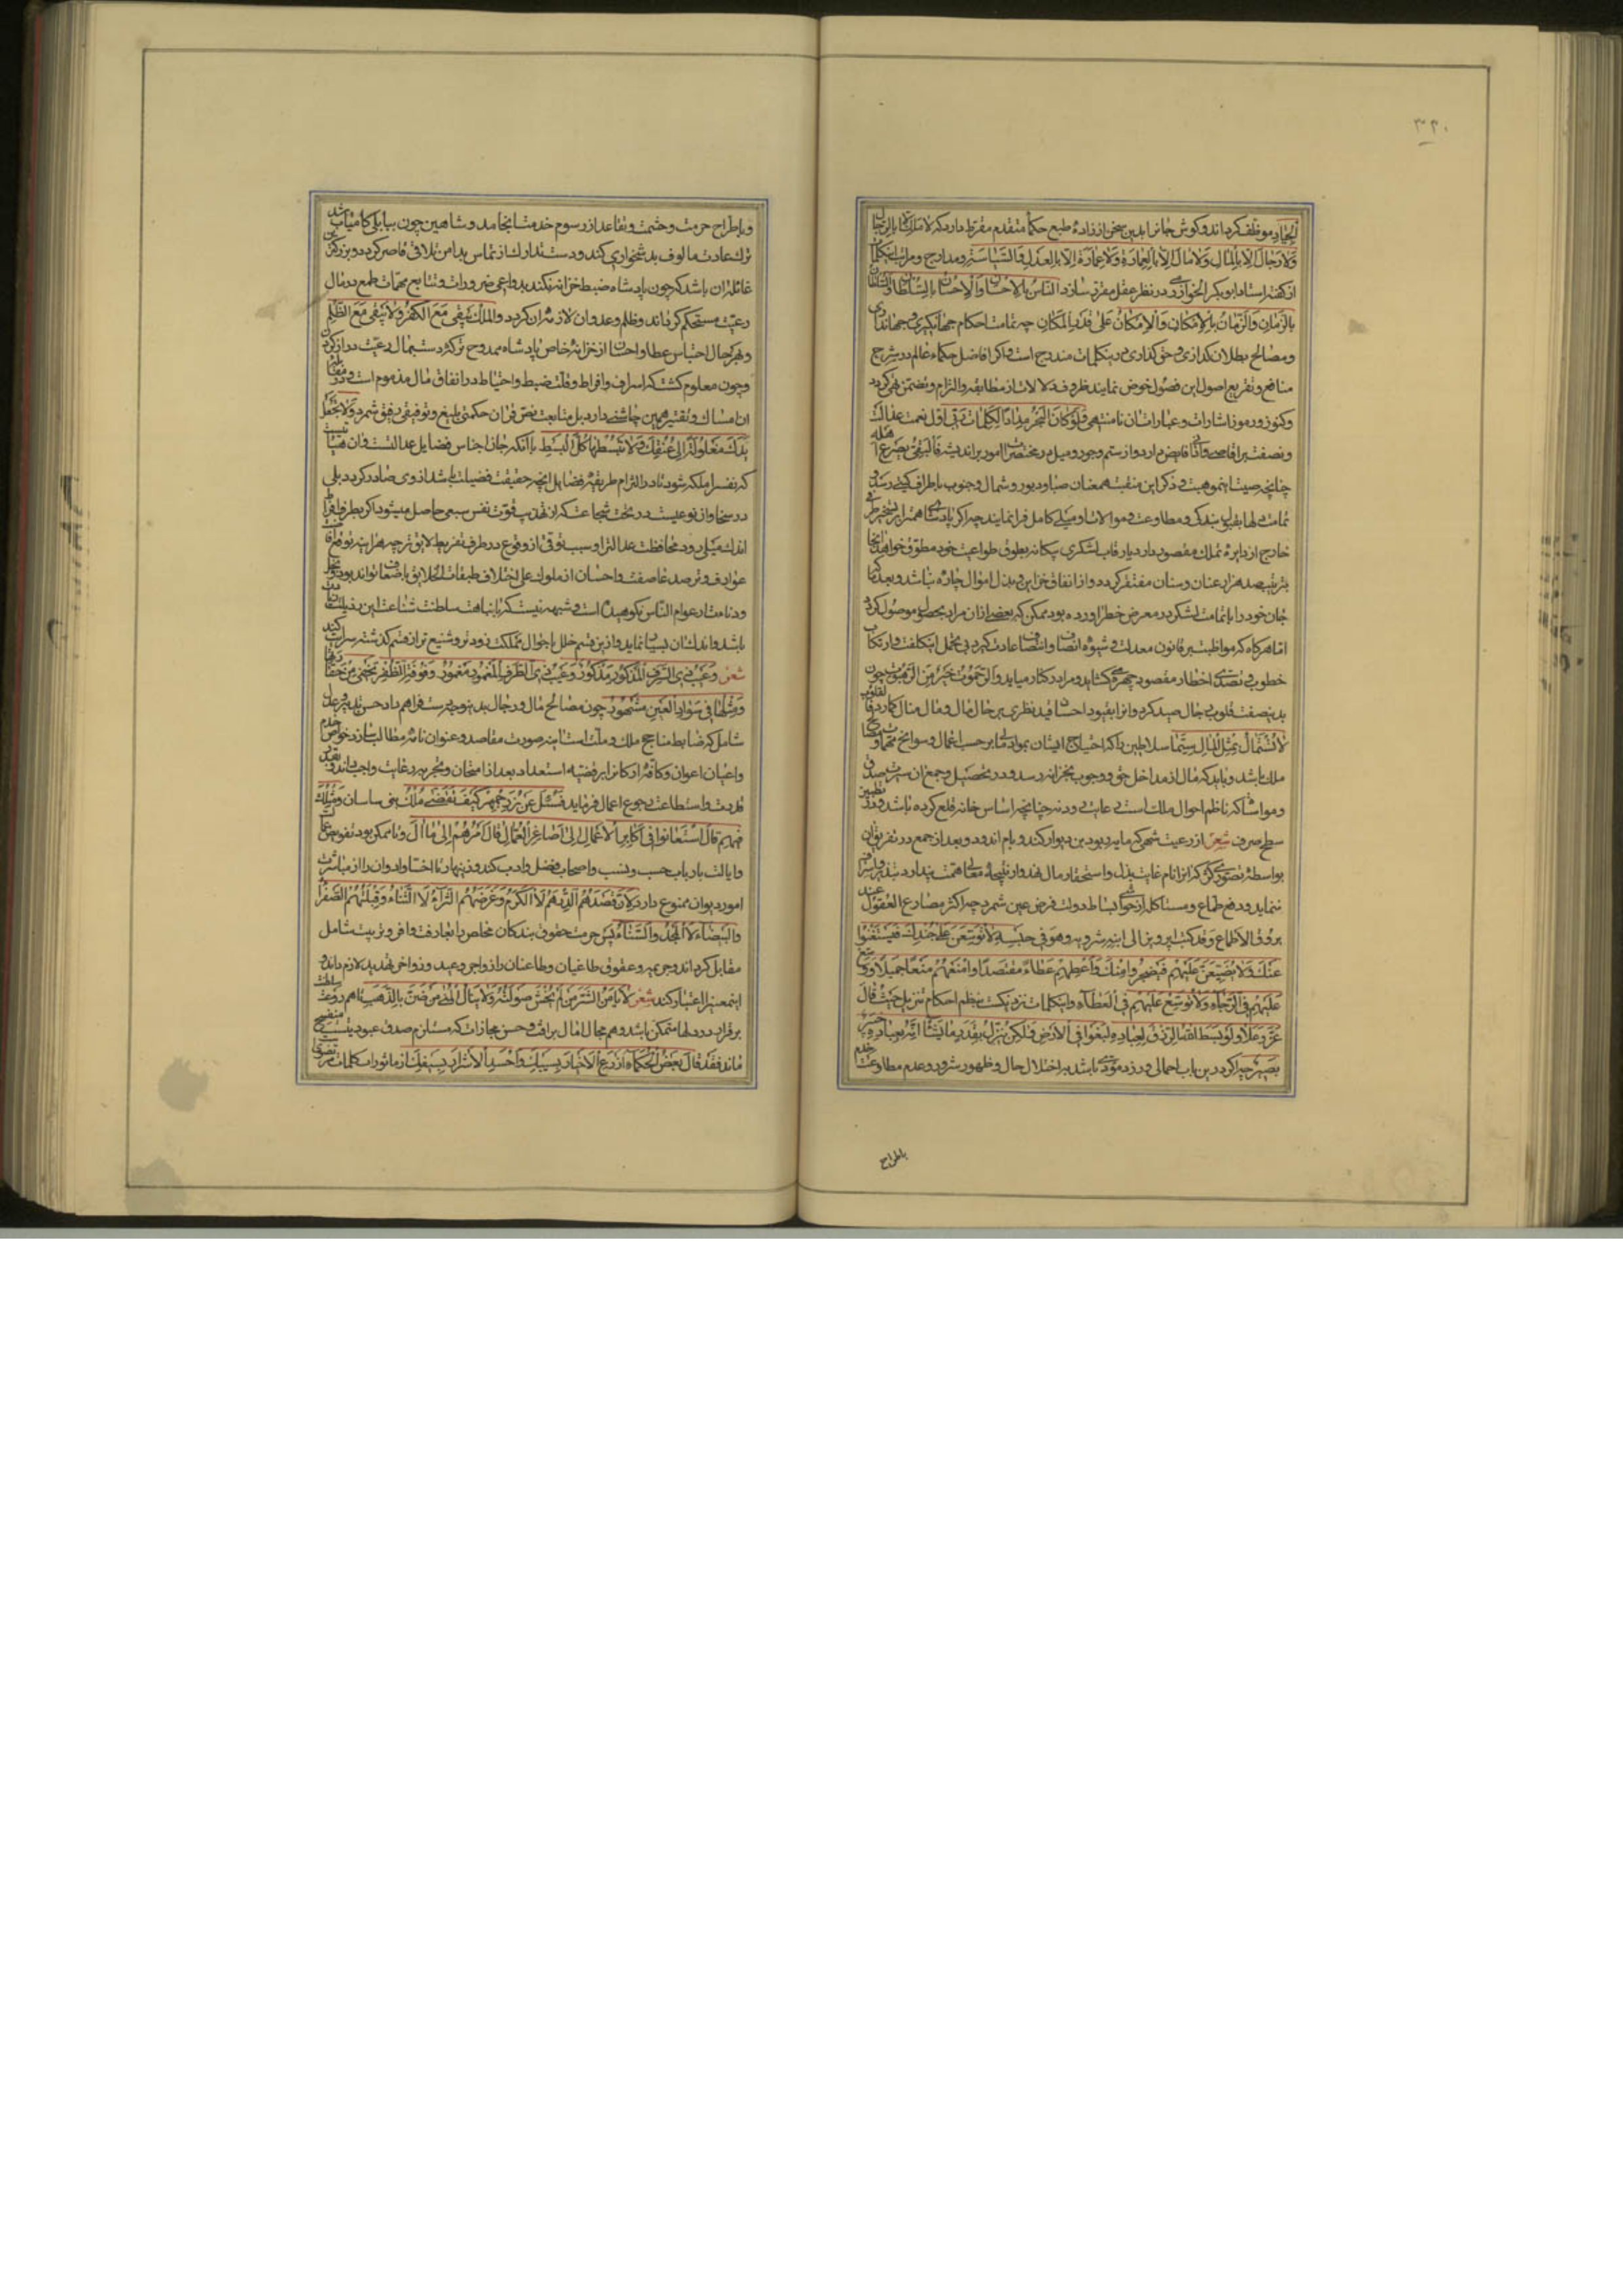 ۳۳۰
الجیاد موظف کرداند و کوش جانرا بدین سخن از زادهٔ طبع حکماء متقدم مقرط دارد که لا ملک الا بالرجال
ولا رجال الا بالمال ولا مال الا بالعمارة ولا عمارة الا بالعدل والسیاسة و مدارج و مراتب
از کفته استاد ابوبکر الخوارزمی در نظر عقل مقرر سازد الناس بالاحسان والاحسان بالسلطان والسلطان
بالزمان والزمان بالامکان والامکان علی قدر المکان چه تمامت احکام جهانکیری و جهانداری
و مصالح بطلان کدازی و حق کذاری درین کلمات مندرج است و اکر افاضل حکماء عالم در شرح
منافع و تفریع اصول این فصول خوض نمایند ظروف دلالات از مطابقه و التزام و تضمن تهی کردد
و کنوز و رموز اشارات و عبارات آن نامنتهی فلو کان البحر مدادا لکلمات ربی اول نعمت عدالت
و نصفت بر اقاصی و ادانی فایض دارد و از ستم و جور و میل در مختصرات امور بر اندیشد
چنانچه صیت این موهبت و ذکر این منقبت همعنان صبا و دبور و شمال و جنوب باطراف کیتی رسد
تمامت دلها بقبول بندکی و مطاوعت و موالات او میلی کامل فرا نمایند چه اکر پادشاه
خارج از دایرهٔ تملک مقصود دارد یا رقاب لشکری بیکانه بطوق طواعیت خود مطوق خواهد
بترتیب صد هزار عنان و سنان مفتقر کردد و از انفاق خزاین و بذل اموال چاره نباشد و بعد
جان خود را با تمامت لشکر در معرض خطر آورده بود و ممکن که بعضی از آن مراد بحصول موصول کردد
اما هرکاه که مواظبت بر قانون معدلت و شیوهٔ انصاف و انتصاف عادت کیرد بی تحمل این کلفت و ارتکاب
خطوب و تصدی اخطار مقصود چهره کشاید و مراد در کنار میاید والرحموت خیر من الرهبوت چون
بدین صفت قلوب رجال صید کرد و آنرا بقیود احسان مقید نظری بر حال مال و منال کمارد
لا تستمال بمثل المال سیما سلاطین را که احتیاج ایشان بمواد مال بر حسب اعمال و سوانح مهمات
ملک باشد و باید که مال از مداخل حق و وجوب بخزانه رسد و در تحصیل و جمع آن سیرت صدق
و مواسا که ناظم احوال ملک است رعایت رود نه چنانچه اساس خانه قلع کرده باشد و در
سطح صرف شعر از رعیت شهی که مایه ربود بن دیوار کند و بام اندود و بعد از جمع در تفریق آن
بواسطهٔ تصور
ننماید و دفع طماع و مستاکله از حواشی بساط دولت فرض عین شمرد چه اکثر مصارع العقول عند
بروق الاطماع و قد کتب اپرویز الی ابنه شرویه وهو فی حبسه لا توسعن علی جندک فیستغنوا
عنک ولا تضیقن علیهم فیضجروا منک واعطهم عطاء مقتصدا وامنعهم منعا جمیلا ووسع
علیهم فی الرجاء ولا توسع علیهم فی العطاء و این کلمات نزدیک است بنظم احکام تنزیل حیث قال
عز وعلا ولو بسط الله الرزق لعباده لبغوا فی الارض ولکن ینزل بقدر ما یشاء انه بعباده خبیر
بصیر چه اکر درین باب اهمالی ورزد مؤدی باشد بر اختلال حال و ظهور شرور و عدم مطاوعت خدم
باطراح
و باطراح حرمت و حشمت و تقاعد از رسوم خدمت انجامد و شاهین چون بیابلی کامیاب شد
ترک عادت مألوف بدشخواری کند و دست تدارک از تماس بدامن تلافی قاصر کردد و بزرکترین
غائلهٔ آن باشد که چون پادشاه ضبط خزانه نکند بدواعی ضرورات و تتابع مهمات طمع در مال
رعیت مستحکم کرداند و ظلم و عدوان لازمهٔ آن کردد والملک یبقی مع الکفر ولا یبقی مع الظلم
و بهر حال احتباس عطا و احسان از خزانهٔ خاص پادشاه ممدوح تر که دست بمال رعیت دراز کردن
و چون معلوم کشت که اسراف و افراط و قلت ضبط و احتیاط در انفاق مال مذموم است و در
آن امساک و تقتیر همین چاشنی دارد بل متابعت نص قرآن حکمتی بلیغ و توفیقی رفیق شمرد ولا تجعل
یدک مغلولة الی عنقک ولا تبسطها کل البسط با آنکه جان اجناس فضایل عدالت است و آن هیأتیست
که نفس را ملکه شود تا در التزام طریقه فضایل آنچه حقیقت فضیلت باشد از وی صادر کردد بلی
در سخا و آن نوعیست در تحت شجاعت که از تهذیب قوت نفس سبعی حاصل میشود اکر بطرف افراط
اندک میلی رود محافظت عدالت را و سبب توقی از وقوع در طرف تفریط لایق تر چه هر آینه
عوارف و ترصد عاصفت و احسان از ملوک علی اختلاف طبقات الخلایق باضعاف تواند بود
و دنامت از عوام الناس نکوهیده است و شبهه نیست که تا نباهت سلطنت شناعت این رذیلت
باشد و اندک آن بسیار نماید و ازین قسم خلل باحوال مملکت زودتر و شنیع تر از قسم کذشته سرایت کند
شعر وعیب ذی الشرف المذکور مذکور وعیب ذی الطرف المغمور مغمور وفوقة الظفر تخفی من حقارتها
ومثلها فی سواد العین مشهور چون مصالح مال و رجال بدین وتیره مرتب فراهم دارد حسن تدبیر و عدل
شامل که ضابط مناجح ملک و ملت است آینهٔ صورت مقاصد و عنوان نامهٔ مطالب سازد خواص خدم
و اعیان اعوان و کافهٔ ارکان را بر قضیهٔ استعداد بعد از امتحان و تجربه رعایت واجب داند
طریقت و استطاعت رجوع اعمال فرماید فسئل عن بزرجمهر کیف نقضی ملک بنی ساسان و مثلک
فیهم قال استعانوا فی اکابر الاعمال الی اصاغر العمال فآل امرهم الی ما آل و تا ممکن بود تفویض عمل
و ایالت بارباب حسب و نسب و اصحاب فضل و ادب کند و زینهار تا اخساء و ادوان را از مباشرت
امور دیوان ممنوع دارد لان قصدهم الدرهم لا الکرم وغرضهم الثراء لا الثناء وقبلتهم الصفراء
والبیضاء لا المجد والسناء پس حرمت حقوق بندکان مخلص را بعارفت وافر و تربیت شامل
مقابل کرداند و جریمه و عقوق طاغیان و طاعنان را زواجر وعید و نواخر تهدید لازم داند و سلطنت
این معنی را اعتبار کند شعر لا یأمن الشر من لم یخش صولته ولا ینال المنی من ضن بالذهب تا هم روعت
برقرار در دلها متمکن باشد و هم مجال آمال برأفت و حسن مجازات که مستلزم صدق عبودیتست منفسح
ماند فقد قال بعض الحکماء ازرع الاخیار بسیبک واحسد الاشرار بسیفک از مأثورات کلمات